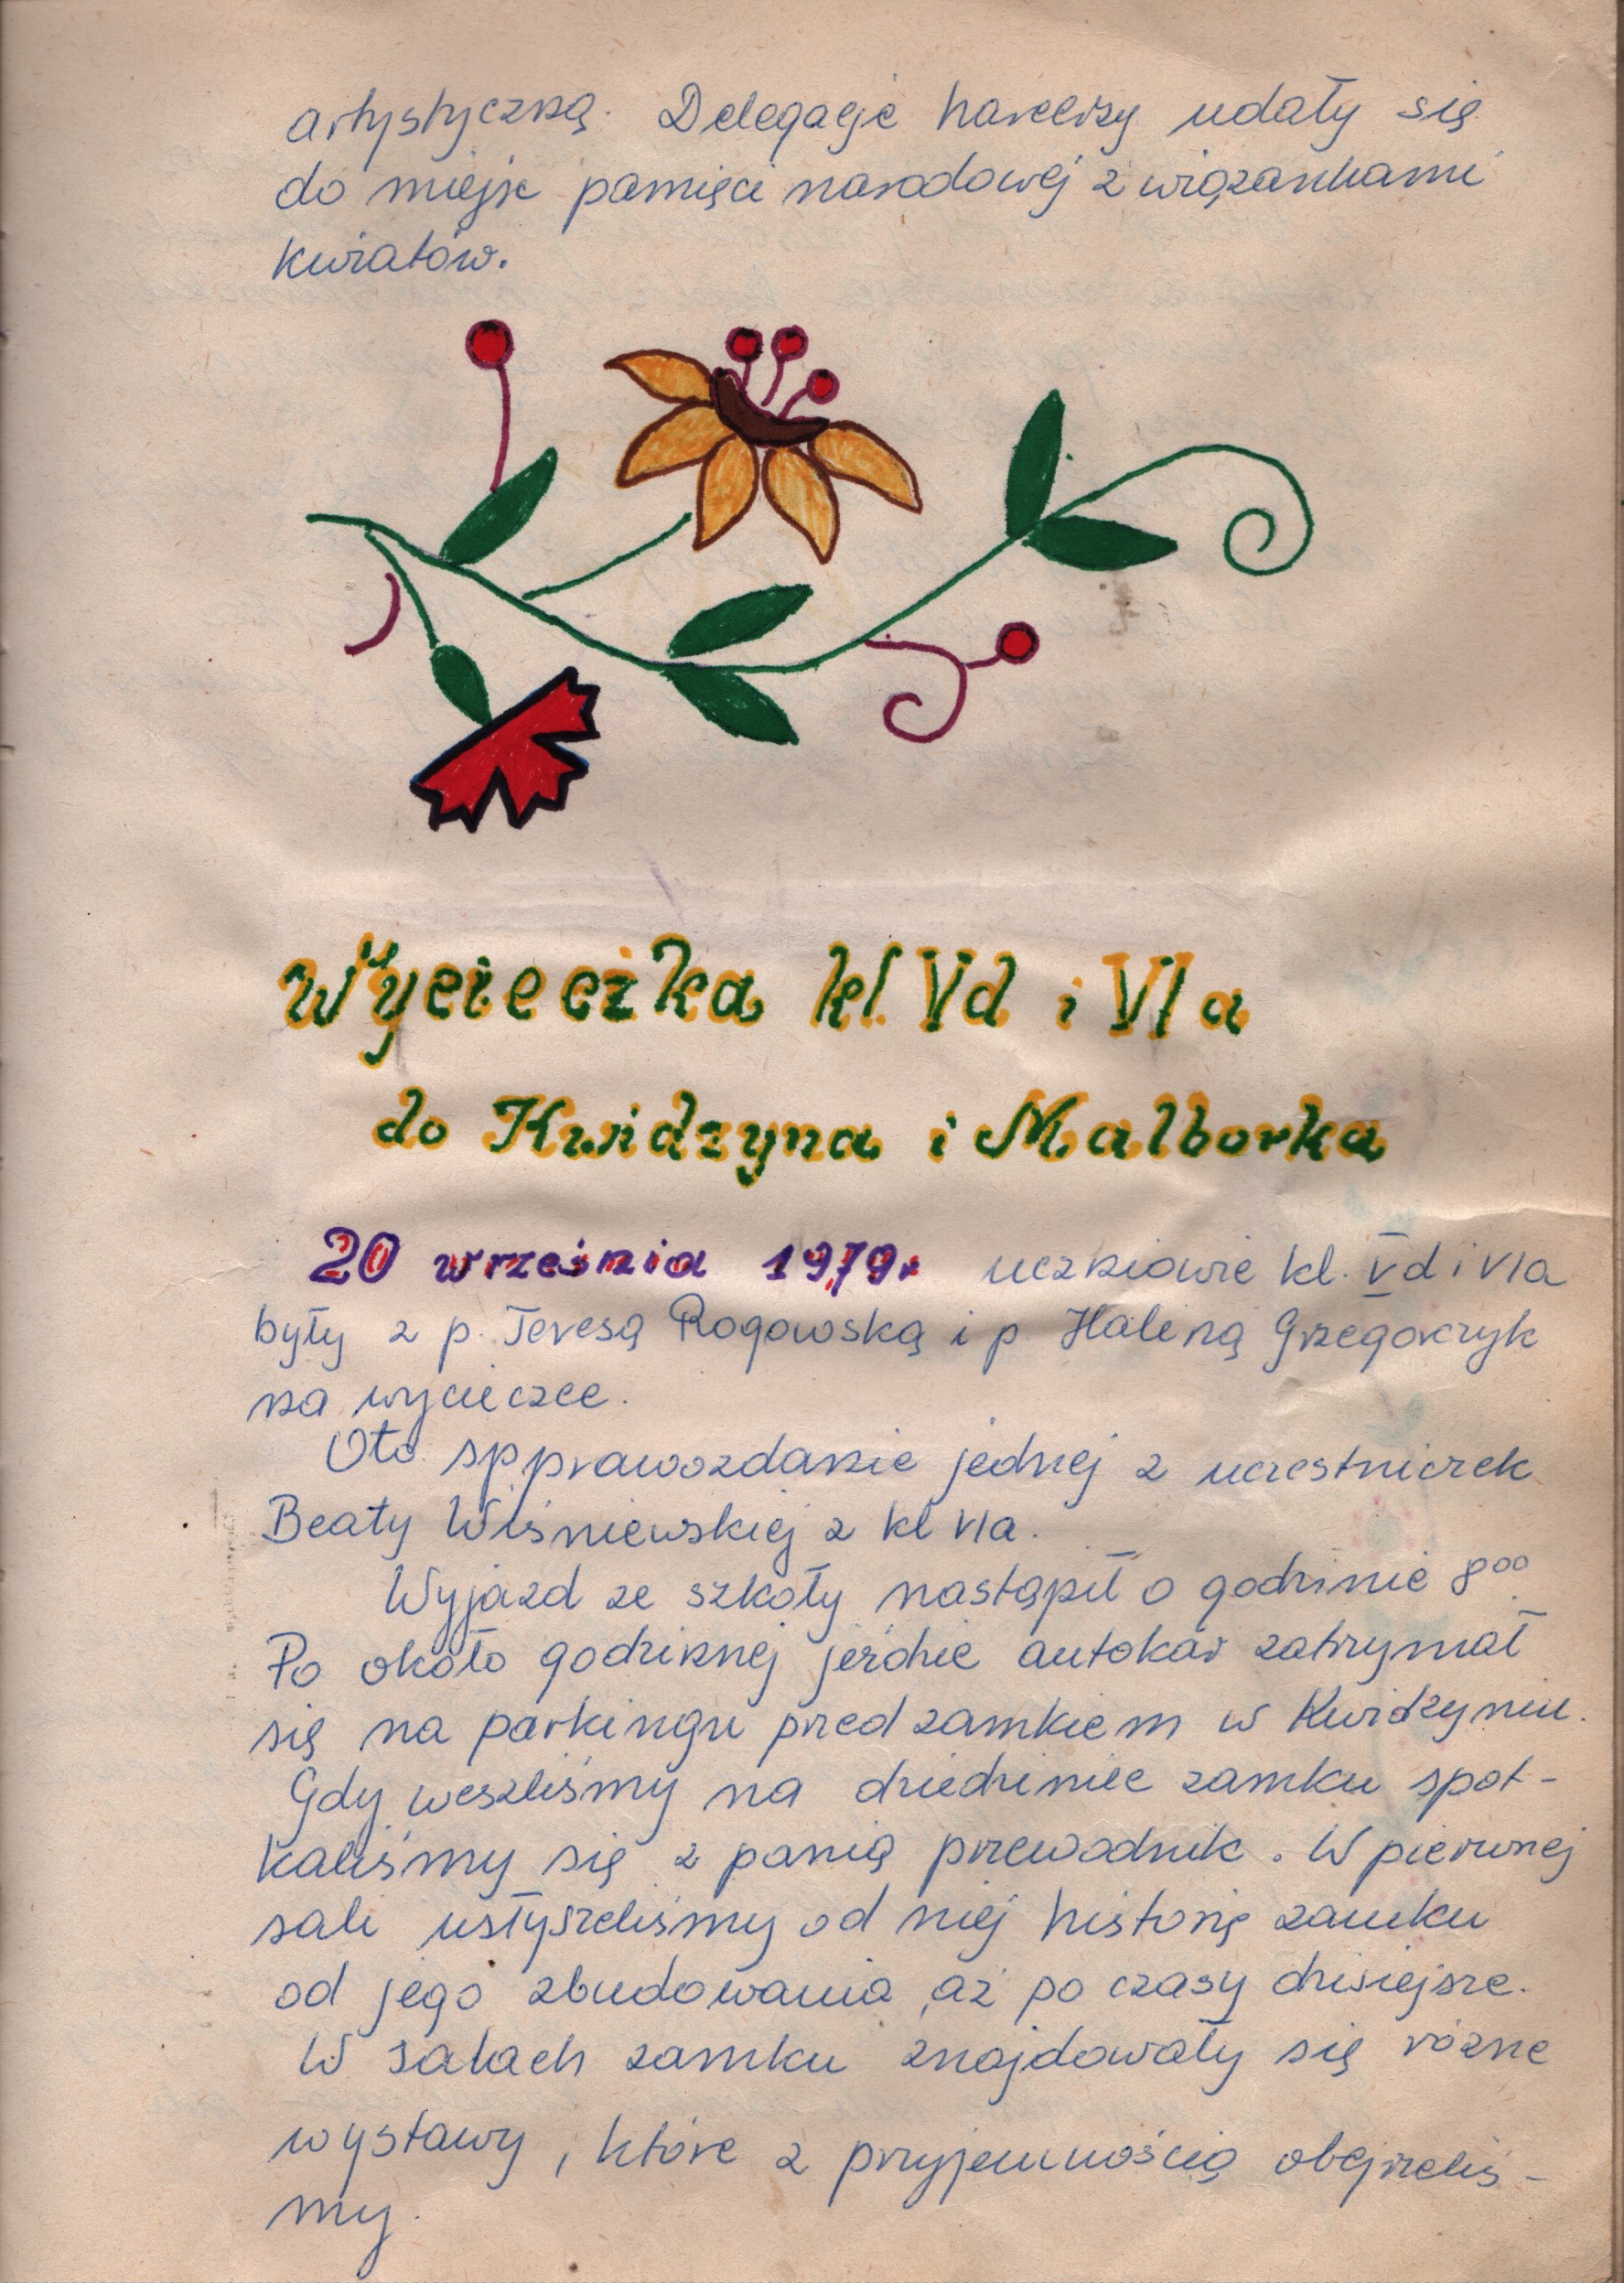 artystyczną. Delegacje harcerzy udały się
do miejsc pamięci narodowej z wiązankami
kwiatów.
Wycieczka kl. Vd i VIa
do Kwidzyna i Malborka
20 września 1979r uczniowie kl. Vd i VIa
były z p. Teresą Rogowską i p. Haliną Grzegorczyk
na wycieczce.
Oto spprawozdanie jednej z uczestniczek
Beaty Wiśniewskiej z kl VIa.
Wyjazd ze szkoły nastąpił o godzinie 8⁰⁰.
Po około godzinnej jeździe autokar zatrzymał
się na parkingu przed zamkiem w Kwidzyniu.
Gdy weszliśmy na dziedziniec zamku spot-
kaliśmy się z panią przewodnik. W pierwszej
sali usłyszeliśmy od niej historię zamku
od jego zbudowania, aż po czasy dzisiejsze.
W salach zamku znajdowały się różne
wystawy, które z przyjemnością obejrzeliś-
my.